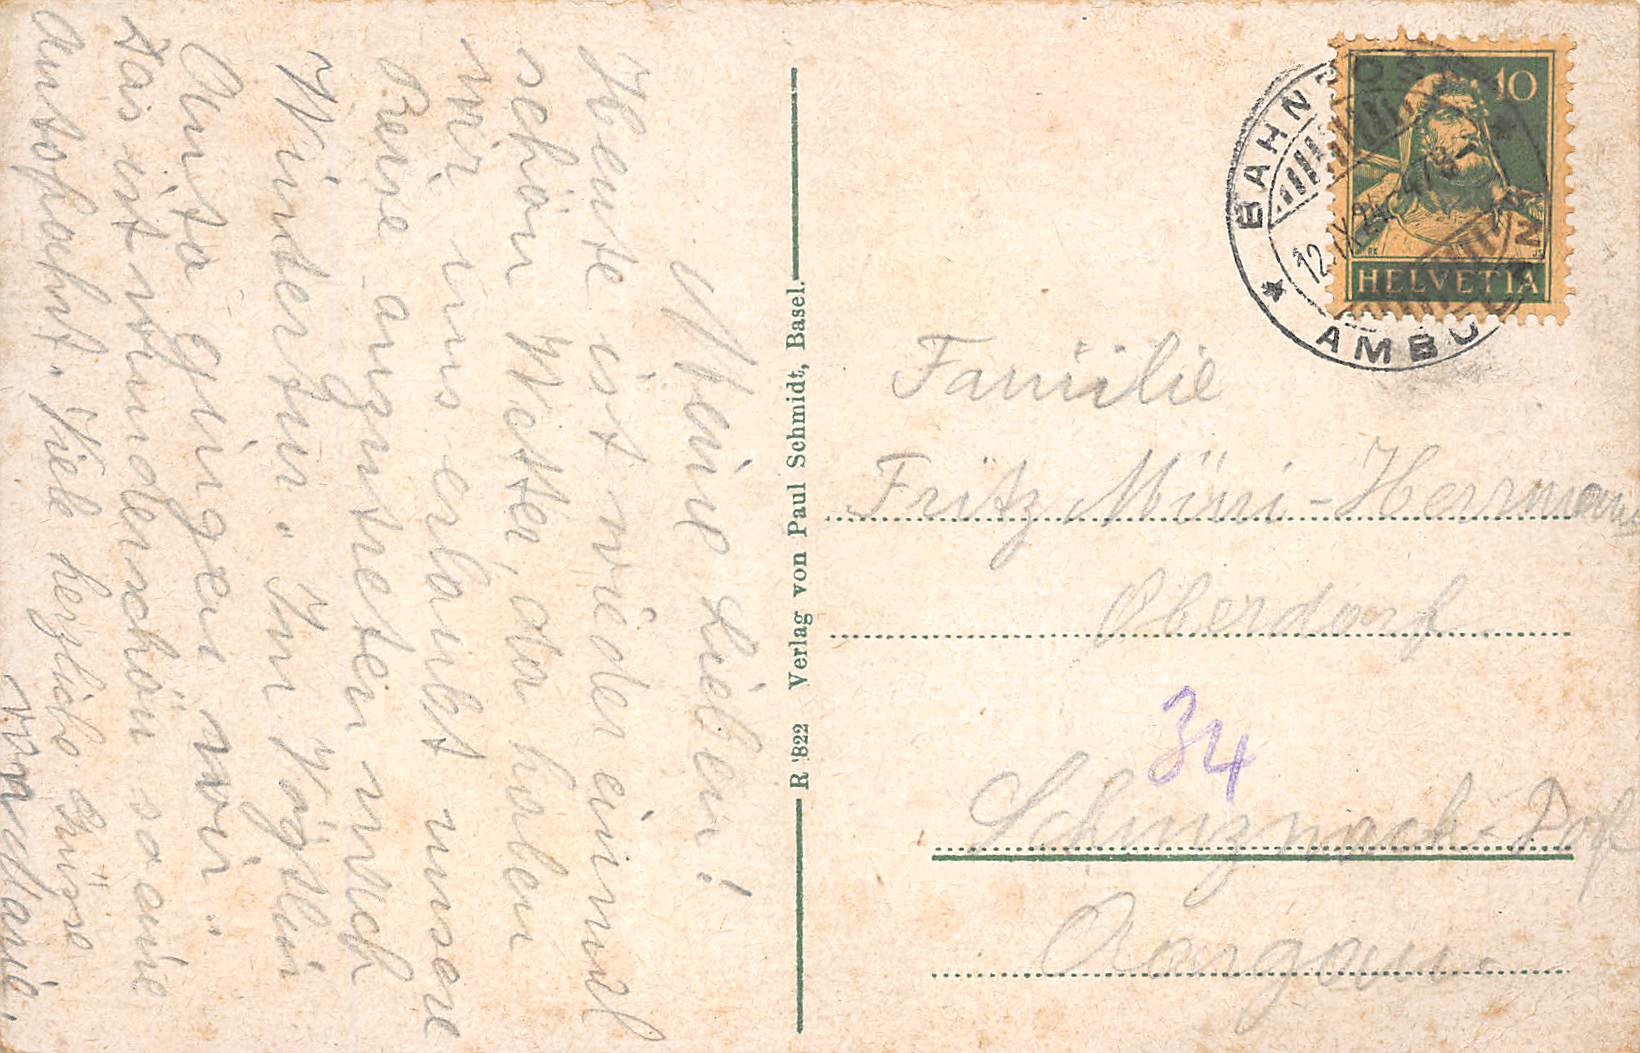 Meine Lieben!
Heute ist wieder einmal
schön Wetter, da haben
wir uns erlaubt unsere
Reise anzutreten nach
Winterthur. Im Vögelin
Auto gingen wir.
Das ist wunderschön so eine
Autofahrt. Viele herzliche Grüsse
R 822 Verlag von Paul Schmidt, Basel.
BAHNPOST
12.IX.
AMBULANT
10
HELVETIA
Familie
Fritz Müri-Herrmann
Oberdorf
34
Schinznach-Dorf
Aargau.